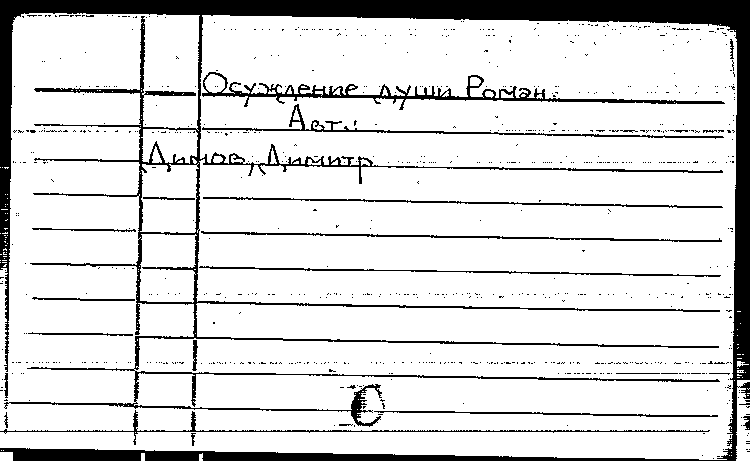 Осуждение души Роман.
Авт.:
Димов, Димитр